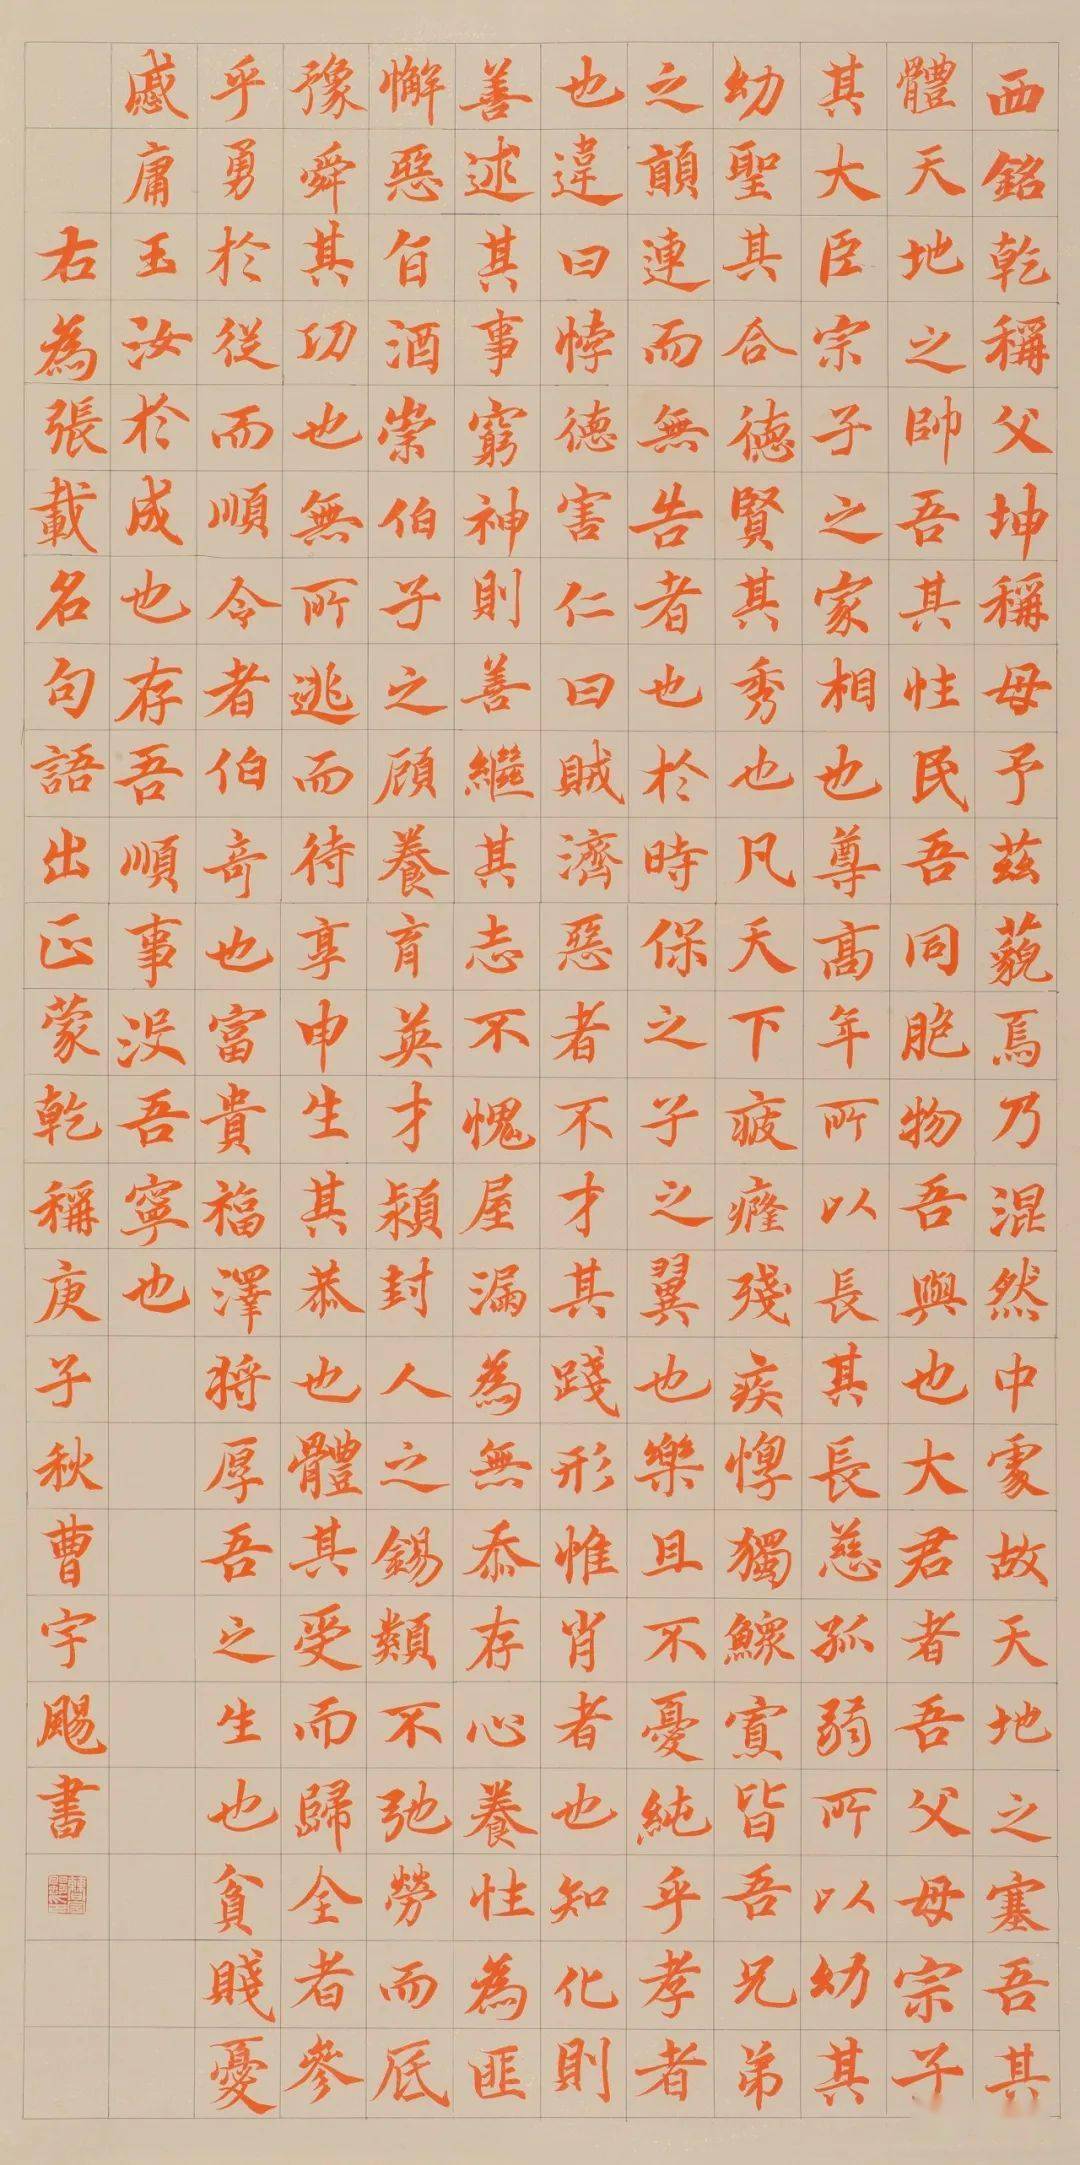 西銘乾稱父坤稱母予茲藐焉乃混然中處故天地之塞吾其
體天地之帥吾其性民吾同胞物吾與也大君者吾父母宗子
其大臣宗子之家相也尊高年所以長其長慈孤弱所以幼其
幼聖其合德賢其秀也凡天下疲癃殘疾惸獨鰥寡皆吾兄弟
之顛連而無告者也於時保之子之翼也樂且不憂純乎孝者
也違曰悖德害仁曰賊濟惡者不才其踐形惟肖者也知化則
善述其事窮神則善繼其志不愧屋漏為無忝存心養性為匪
懈惡旨酒崇伯子之顧養育英才潁封人之錫類不弛勞而厎
豫舜其功也無所逃而待享申生其恭也體其受而歸全者參
乎勇於從而順令者伯奇也富貴福澤將厚吾之生也貧賤憂
戚庸玉汝於成也存吾順事沒吾寧也
右為張載名句語出正蒙乾稱庚子秋曹宇颺書